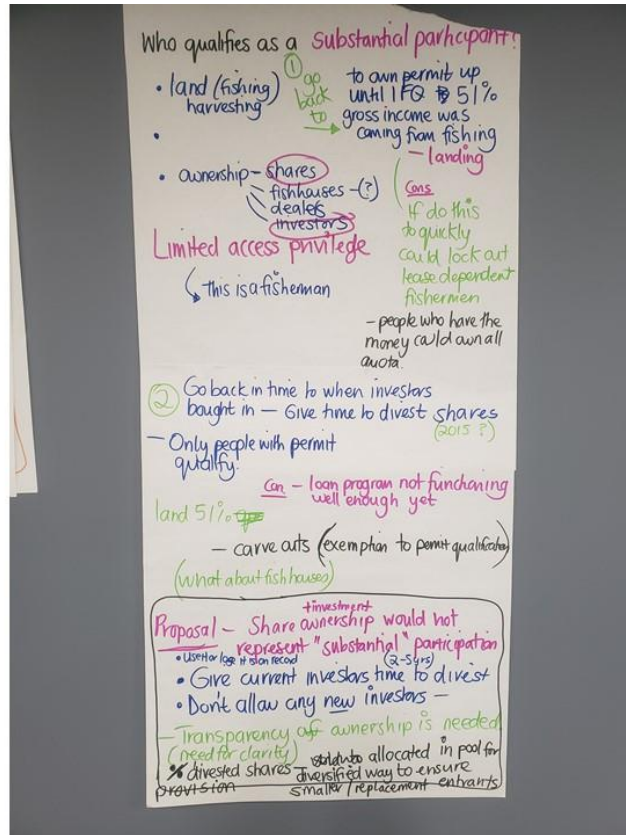 Who qualifies as a Substantial participant?
• land (fishing)
harvesting
•
① go
back
to
to own permit up
until IFQ 51%
gross income was
coming from fishing
– landing
• ownership – shares
fishhouses – (?)
dealers
investors
Cons
If do this
to quickly
could lock out
lease dependent
fishermen
– people who have the
money could own all
quota.
Limited access privilege
this is a fisherman
② Go back in time to when investors
bought in – Give time to divest shares
(2015?)
– Only people with permit
qualify.
Con – loan program not functioning
well enough yet
land 51%
– carve outs (exemption to permit qualification)
(what about fish houses)
+investment
Proposal – Share ownership would not
represent "substantial" participation
• Use it or lose it is on record
(2-5yrs)
• Give current investors time to divest
• Don't allow any new investors –
– Transparency of ownership is needed
(need for clarity)
% divested shares allocated in pool for
provision diversified way to ensure
smaller/replacement entrants